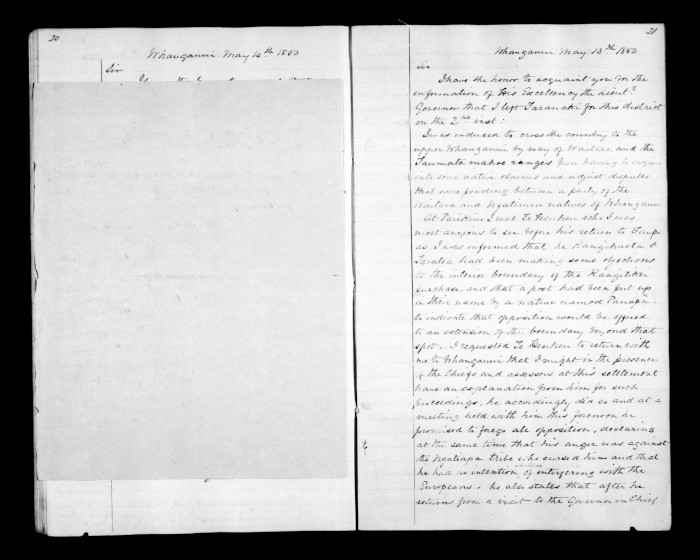 20
Whanganui May 14th 1850
Sir
21
Whanganui May 13th 1850
Sir
I have the honor to acquaint you for the
information of His Excellency the Lieut.
Governor that I left Taranaki for this district
on the 2nd inst:
I was induced to cross the country to the
upper Whanganui by way of Waitara and the
Taumata mahoe ranges from having to enquire
into some native claims and adjust disputes
that were pending between a party of the
Waitara and Ngatiruru natives of Whanganui
At I met Te Heuheu who I was
most anxious to see before his return to Taupo
as I was informed that he Rangihaeata &
Taratoa had been making some objections
to the interior boundary of the Rangitikei
purchase, and that a post had been put up
in their name by a native named Panapa.
to indicate that opposition would be offered
to an extension of the boundary beyond that
spot. I requested Te Heuheu to return with
me to Whanganui that I might in the presence
of the Chiefs and assessors at this settlement
have an explanation from him for such
proceedings, he accordingly did so and at a
meeting held with him this forenoon he
promised to forego all opposition, declaring
at the same time that his anger was against
the Ngatiapa tribe who cursed him and that
he had no intention of interfering with the
Europeans. he also states that after he
returns from a visit to the Governor in Chief